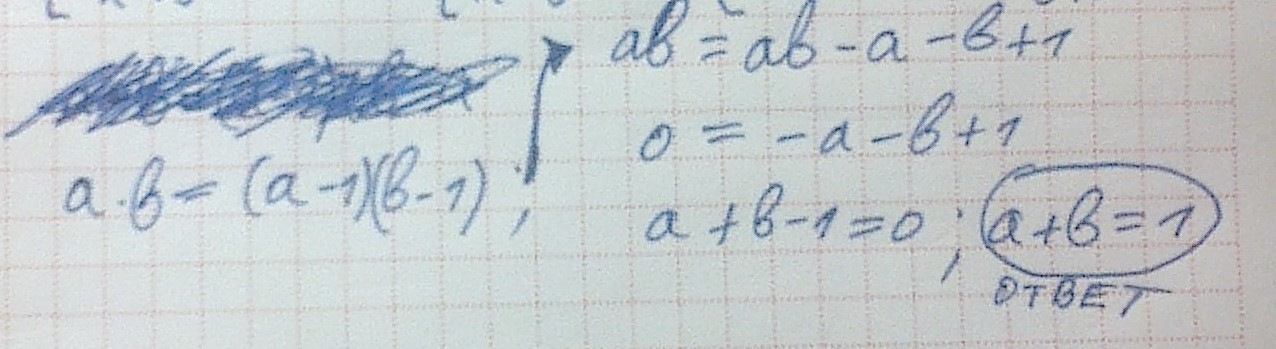 a·b = (a-1)(b-1) ;
ab = ab - a - b + 1
0 = -a - b + 1
a + b - 1 = 0 ; a + b = 1
ОТВЕТ